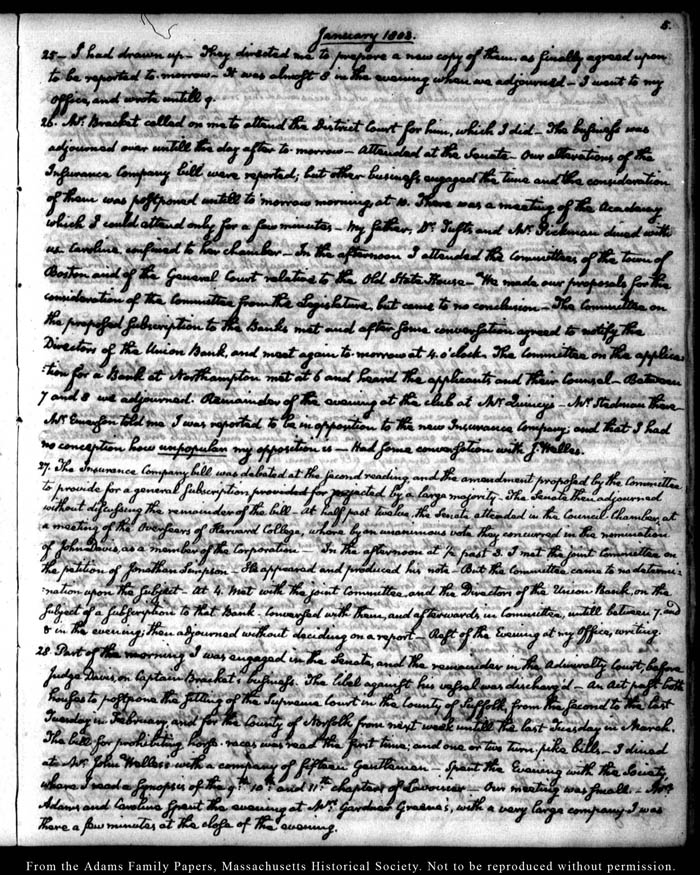 January 1803.
5.
25 – I had drawn up – They directed me to prepare a new copy of them, as finally agreed upon
to be reported to-morrow – It was almost 8 in the evening when we adjourned – I went to my
office, and wrote untill 9.
26. Mr. Bracket called on me to attend the District Court for him, which I did – The business was
adjourned over untill the day after to-morrow – Attended at the Senate – Our alterations of the
Insurance Company bill were reported; but other business engaged the time and the consideration
of them was postponed untill to morrow morning, at 10. There was a meeting of the Academy
which I could attend only for a few minutes – My father, Dr. Tufts, and Mr. Pickman dined with
us. Caroline confined to her chamber – In the afternoon I attended the Committees of the town of
Boston and of the General Court relative to the Old State House – We made our proposals for the
consideration of the Committee from the Legislature, but came to no conclusion – The Committee on
the proposed subscription to the Banks met and after some conversation agreed to notify the
Directors of the Union Bank, and meet again to-morrow at 4. o'clock. The Committee on the applica-
:tion for a Bank at Northampton met at 6 and heard the applicants and their Counsel – Between
7 and 8 we adjourned. Remainder of the evening at the club at Mr. Quincy's – Mr. Stedman there –
Mr. Emerson told me I was reported to be in opposition to the new Insurance Company; and that I had
no conception how unpopular my opposition is – Had some conversation with J. Welles.
27. The Insurance Company bill was debated at the second reading, and the amendment proposed by the Committee
to provide for a general subscription provided for rejected by a large majority – The Senate then adjourned
without discussing the remainder of the bill – At half past twelve, the Senate attended in the Council Chamber, at
a meeting of the Overseers of Harvard College, where by an unanimous vote they concurred in the nomination
of John Davis, as a member of the Corporation – In the afternoon at ½ past 3. I met the joint Committee on
the petition of Jonathan Simpson – He appeared and produced his note – But the Committee came to no determi:
:nation upon the subject – At 4. Met with the joint Committee, and the Directors of the Union Bank, on the
subject of a subscription to that Bank – Conversed with them, and afterwards in Committee, untill between 7. and
8 in the evening; then adjourned without deciding on a report – Rest of the Evening at my Office, writing.
28 Part of the morning I was engaged in the Senate, and the remainder in the Admiralty Court, before
Judge Davis, on Captain Bracket's business. The libel against his vessel was discharg'd – An Act past both
houses to postpone the sitting of the Supreme Court in the County of Suffolk, from the second to the last
Tuesday in February, and for the County of Norfolk from next week untill the last Tuesday in March.
The bill for prohibiting horse-races was read the first time; and one or two turn-pike bills – I dined
at Mr. John Welles's with a company of fifteen Gentlemen – Spent the Evening with the Society,
where I read a Synopsis of the 9th. 10th. and 11th chapters of Lavoisier – Our meeting was small. – Mrs.
Adams and Caroline spent the evening at Mr. Gardner Greene's, with a very large company – I was
there a few minutes at the close of the evening.
From the Adams Family Papers, Massachusetts Historical Society. Not to be reproduced without permission.